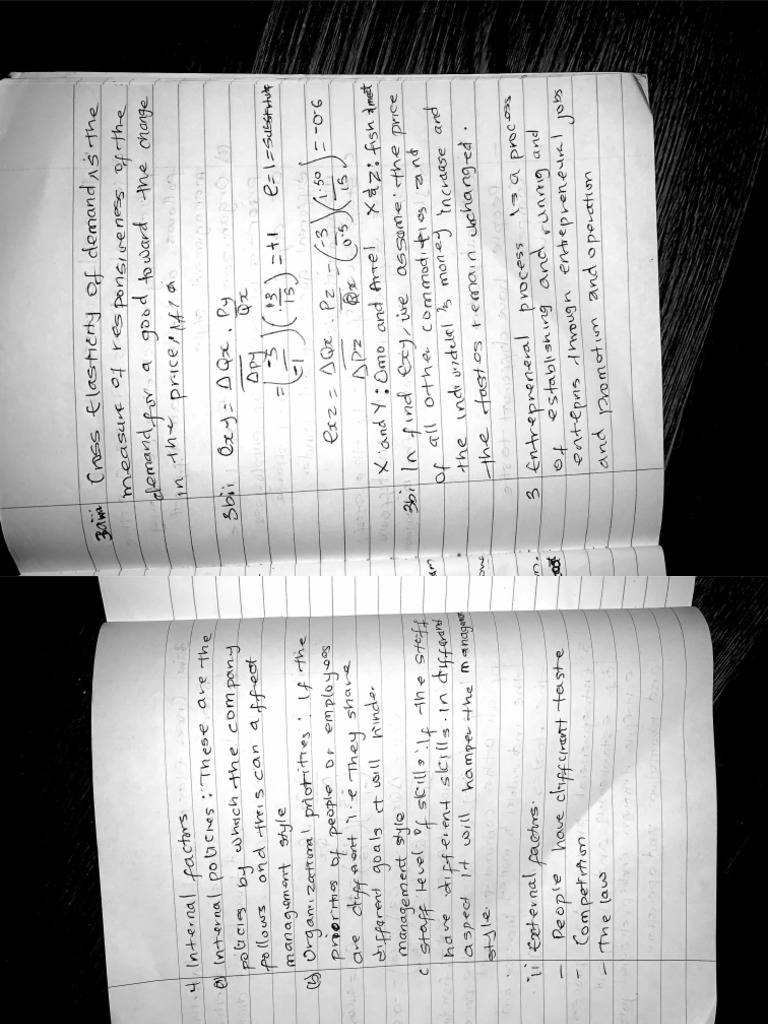 3aiii Cross Elasticity of demand is the
measure of responsiveness of the
demand for a good toward the change
in the price of a
3bii exy = ΔQx . Py
ΔPy Qx
= (-3/-1) (+3/15) = +1 e=1=substitute
exz = ΔQx . Pz = (-3/0.5) (1.50/15) = -0.6
ΔPz Qx
X and Y: Omo and Ariel X & Z: fish & meat
3bi In find exy, we assume: the price
of all other commodities and
the individual's money increase and
the tastes remain unchanged.
3 Entrepreneral process is a process
of establishing and running and
enterpris through entrepreneural jobs
and promotion and operation
4 Internal factors
a) Internal policies: These are the
policies by which the company
follows and this can affect
management style
(b) Organizational priorities: If the
priorities of people or employees
are different i.e they share
different goals it will hinder
management style
c staff level of skills: If the staff
have different skills in different
aspect it will hamper the management
style.
ii External factors.
- People have different taste
- Competition
- The law